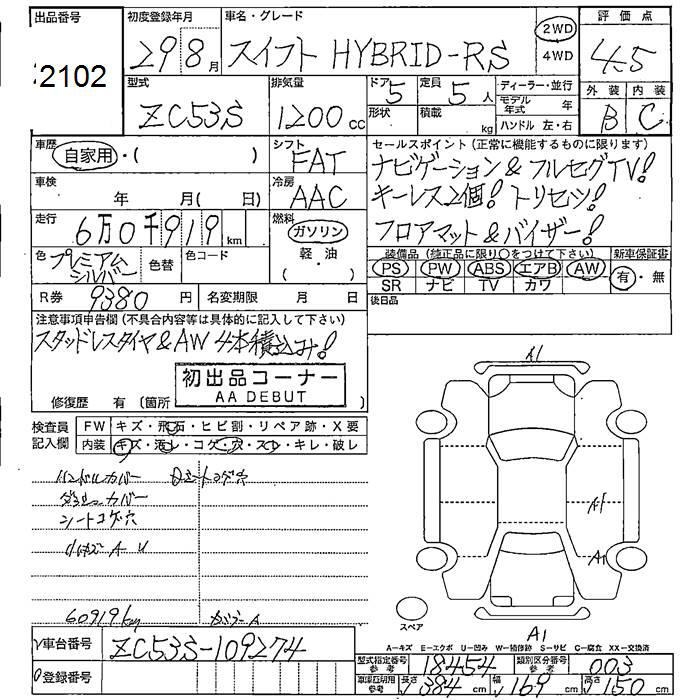 出品番号 初度登録年月 車名・グレード 評価点
2102 29 8月 スイフト HYBRID-RS 2WD 4WD 4.5
型式 排気量 ドア 定員 ディーラー・並行 外装 内装
ZC53S 1200cc 5 5人 モデル年式 年 B C
形状 積載 kg ハンドル 左・右
車歴 シフト セールスポイント (正常に機能するものに限ります)
自家用・( ) FAT ナビゲーション & フルセグTV!
車検 冷房 キーレス2個! トリセツ!
年 月( 日) AAC
走行 燃料 フロアマット & バイザー!
6万0千919km ガソリン
色 色替 色コード 軽・油 装備品 (純正品に限り○をつけて下さい) 新車保証書
プレミアムシルバー ( ) PS PW ABS エアB AW 有・無
SR ナビ TV カワ
R券 9380円 名変期限 月 日 後日品
注意事項申告欄 (不具合内容等は具体的に記入して下さい)
スタッドレスタイヤ & AW 4本積込み!
初出品コーナー
AA DEBUT
修復歴 有 (箇所
A1
検査員 FW キズ・飛石・ヒビ割・リペア跡・X要
記入欄 内装 キズ・汚レ・コゲ・穴・スレ・キレ・破レ
ハンドルカバー
シートコゲ穴
A1
A1
60919km
スペア
A1
A-キズ E-エクボ U-凹み W-補修跡 S-サビ C-腐食 XX-交換済
車台番号 ZC53S-109274
型式指定番号 参考 18454 類別区分番号 参考 003
登録番号
車検証明用 参考 長さ 384cm 幅 169cm 高さ 150cm